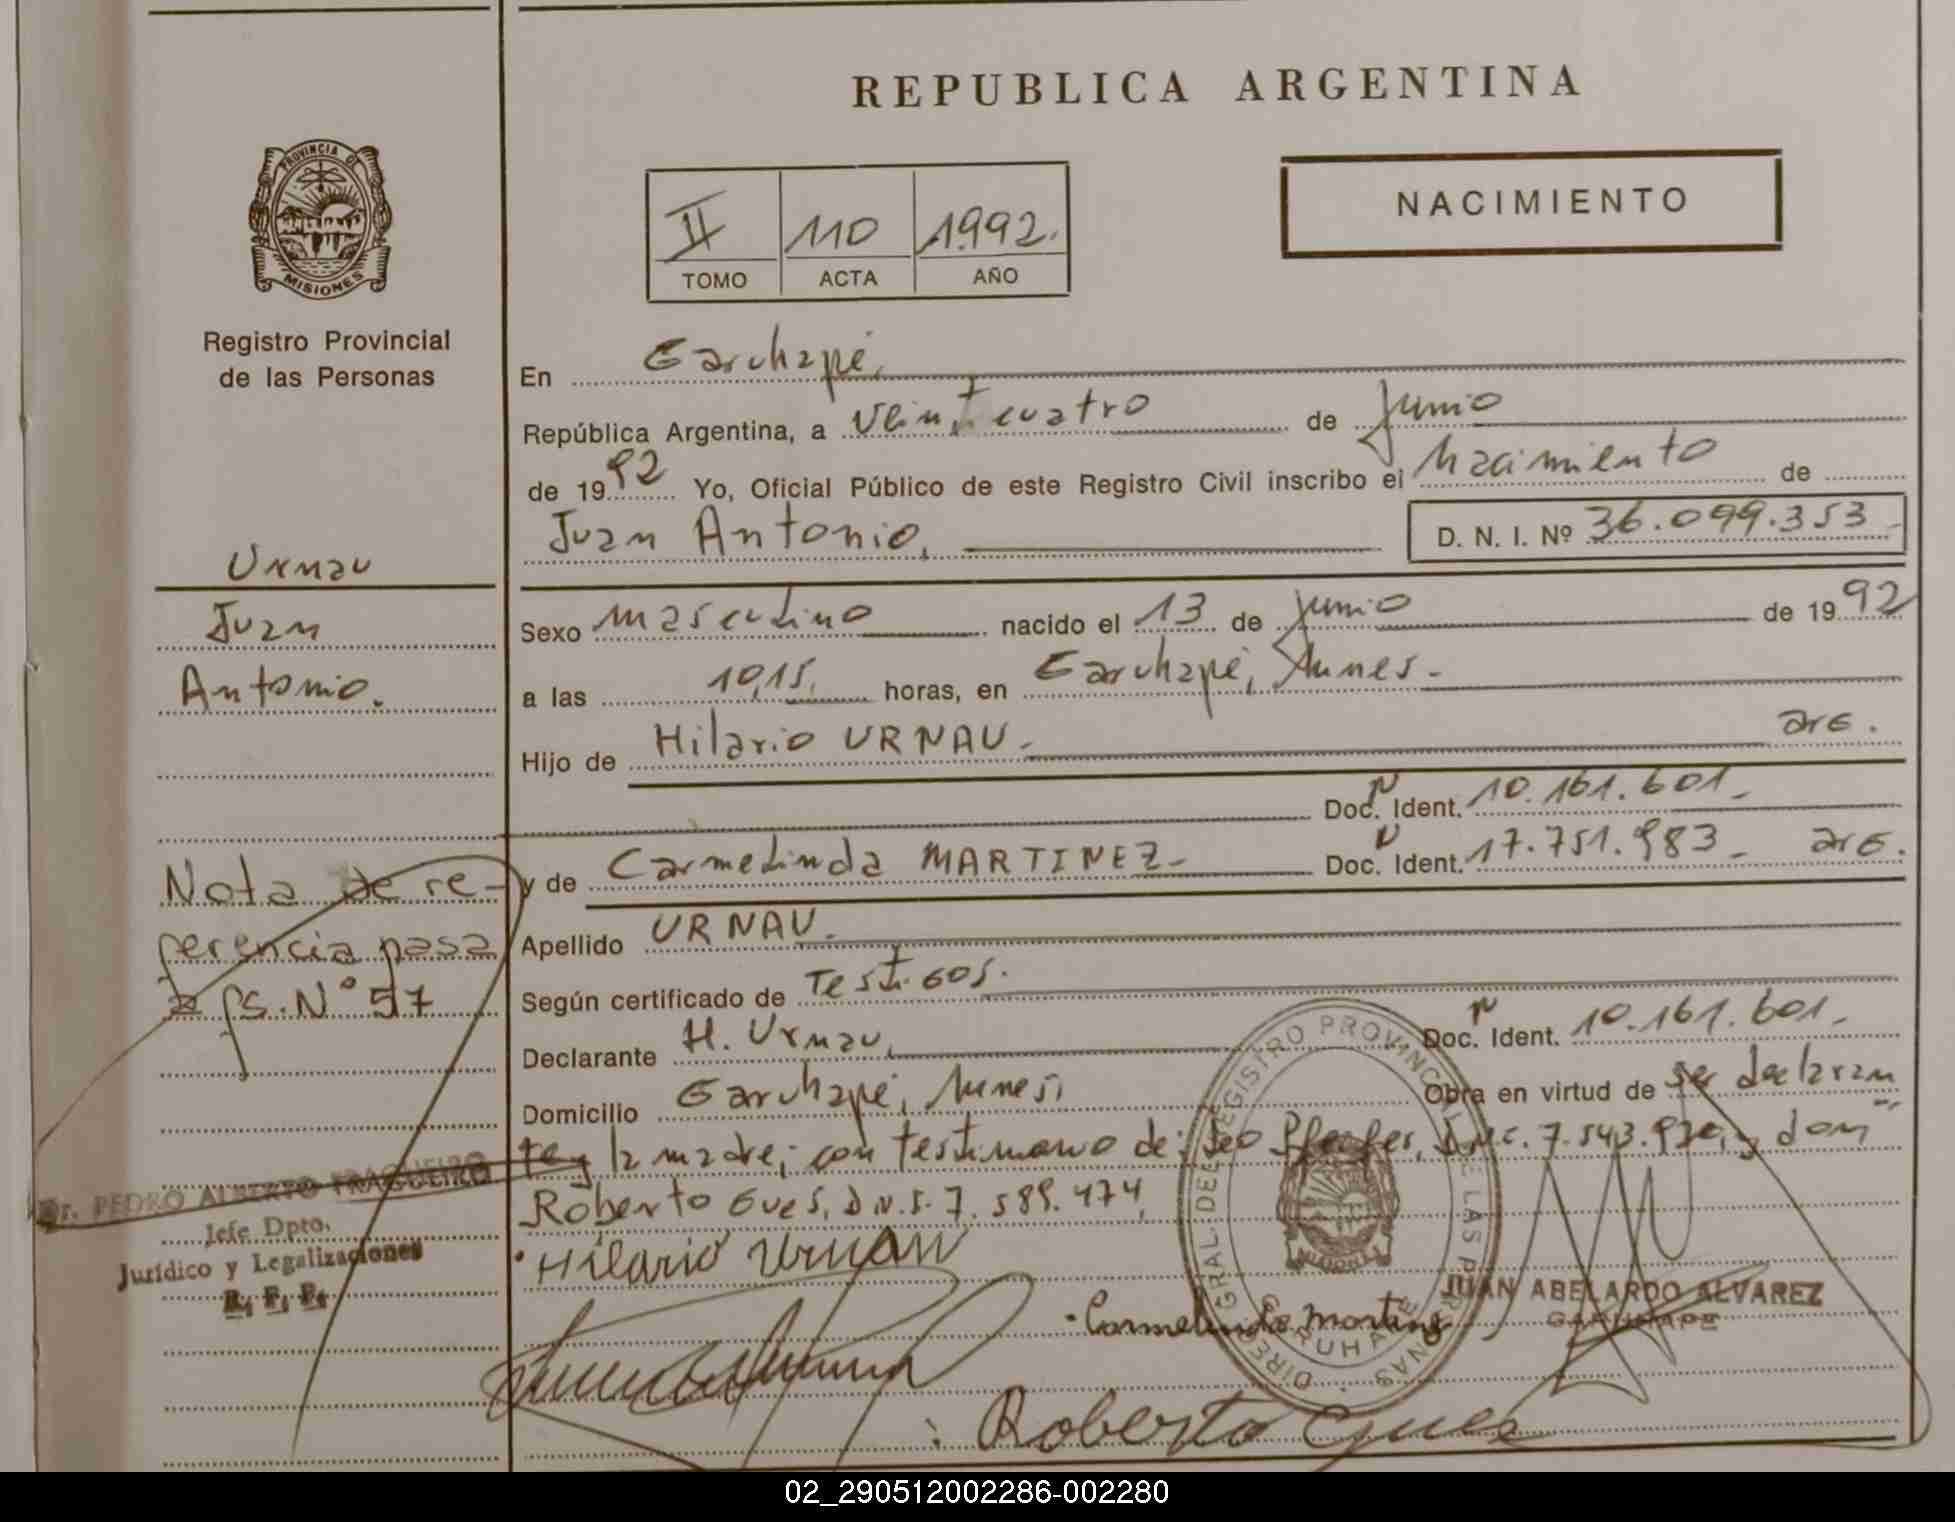 REPUBLICA ARGENTINA
PROVINCIA DE
MISIONES
II 110 1992.
TOMO ACTA AÑO
NACIMIENTO
Registro Provincial
de las Personas
Urnau
Juan
Antonio.
Nota de re-
ferencia pasa
a fs. N° 57
Dr. PEDRO ALBERTO FRAGUEIRO
Jefe Dpto.
Jurídico y Legalizaciones
R. P. P.
En Garuhapé,
República Argentina, a Veinticuatro de Junio
de 1992 Yo, Oficial Público de este Registro Civil inscribo el Nacimiento de
Juan Antonio, D. N. I. Nº 36.099.353-
Sexo masculino nacido el 13 de junio de 1992
a las 10,15, horas, en Garuhapé,
Hijo de Hilario URNAU- arg.
Doc. Ident. 10.161.601-
y de Carmelinda MARTINEZ- Doc. Ident. 17.751.983- arg.
Apellido URNAU.
Según certificado de Testigos.
Declarante H. Urnau, Doc. Ident. 10.161.601-
Domicilio Garuhapé, Obra en virtud de ser declaran
te y la madre; con testimonio de: D.N.I. 7.543.920, y don
Roberto Gues, D.N.I. 7.589.474,
Hilario Urnau
Carmelinda Martinez
JUAN ABELARDO ALVAREZ
GARUHAPE
Roberto Gues
DIREC. GRAL. DEL REGISTRO PROVINCIAL DE LAS PERSONAS
GARUHAPE
MISIONES
02_290512002286-002280